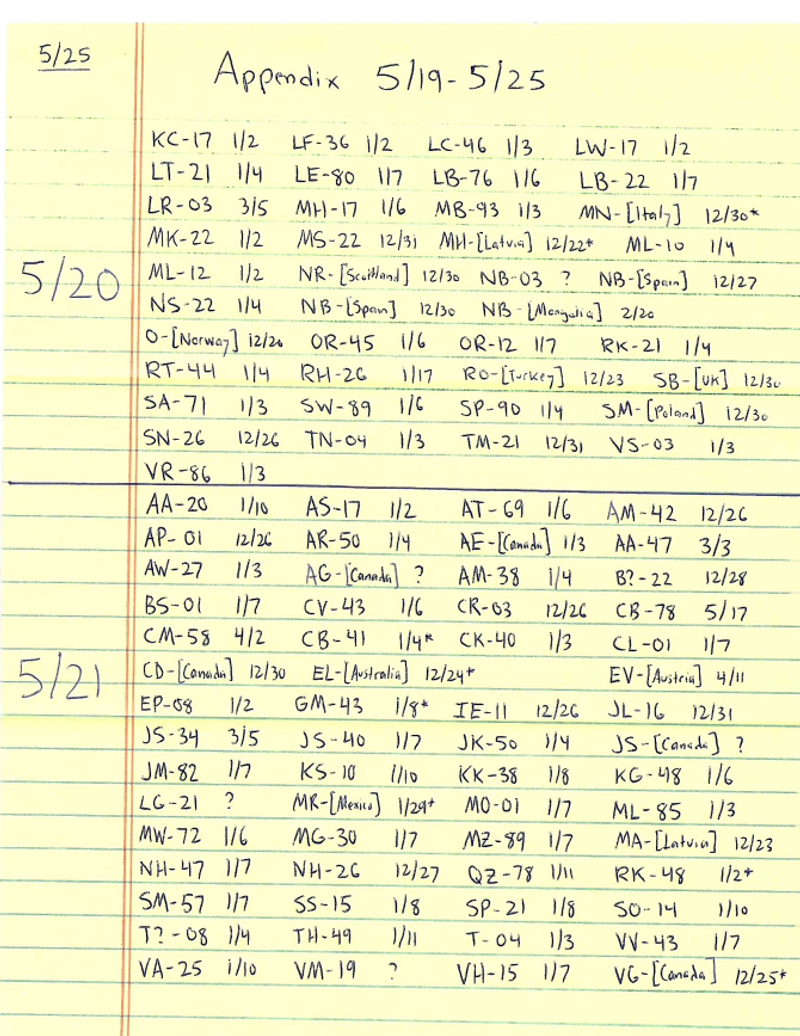 5/25
Appendix 5/19-5/25
KC-17 1/2 LF-36 1/2 LC-46 1/3 LW-17 1/2
LT-21 1/4 LE-80 1/7 LB-76 1/6 LB-22 1/7
LR-03 3/5 MH-17 1/6 MB-93 1/3 MN-[Italy] 12/30*
MK-22 1/2 MS-22 12/31 MH-[Latvia] 12/22* ML-10 1/4
5/20
ML-12 1/2 NR-[Scottland] 12/30 NB-03 ? NB-[Spain] 12/27
NS-22 1/4 NB-[Spain] 12/30 NB-[Mongolia] 2/20
O-[Norway] 12/20 OR-45 1/6 OR-12 1/7 RK-21 1/4
RT-44 1/4 RH-26 1/17 RO-[Turkey] 12/23 SB-[UK] 12/30
SA-71 1/3 SW-89 1/6 SP-90 1/4 SM-[Poland] 12/30
SN-26 12/26 TN-04 1/3 TM-21 12/31 VS-03 1/3
VR-86 1/3
AA-20 1/10 AS-17 1/2 AT-69 1/6 AM-42 12/26
AP-01 12/26 AR-50 1/4 AE-[Canada] 1/3 AA-47 3/3
AW-27 1/3 AG-[Canada] ? AM-38 1/4 B?-22 12/28
BS-01 1/7 CV-43 1/6 CR-03 12/26 CB-78 5/17
CM-58 4/2 CB-41 1/4* CK-40 1/3 CL-01 1/7
5/21
CD-[Canada] 12/30 EL-[Australia] 12/24* EV-[Austria] 4/11
EP-08 1/2 GM-43 1/8* IE-11 12/26 JL-16 12/31
JS-34 3/5 JS-40 1/7 JK-50 1/4 JS-[Canada] ?
JM-82 1/7 KS-10 1/10 KK-38 1/8 KG-48 1/6
LG-21 ? MR-[Mexico] 1/29* MO-01 1/7 ML-85 1/3
MW-72 1/6 MG-30 1/7 MZ-89 1/7 MA-[Latvia] 12/23
NH-47 1/7 NH-26 12/27 QZ-78 1/11 RK-48 1/2*
SM-57 1/7 SS-15 1/8 SP-21 1/8 SO-14 1/10
T?-08 1/4 TH-49 1/11 T-04 1/3 VV-43 1/7
VA-25 1/10 VM-19 ? VH-15 1/7 VG-[Canada] 12/25*